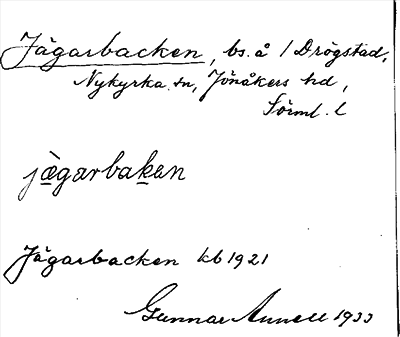 Jägarbacken, bs. å 1 Drögstad,
Nykyrka sn, Jönåkers hd,
Sörml. l
jägarbaken
Jägarbacken kb 1921
Gunnar Annell 1933